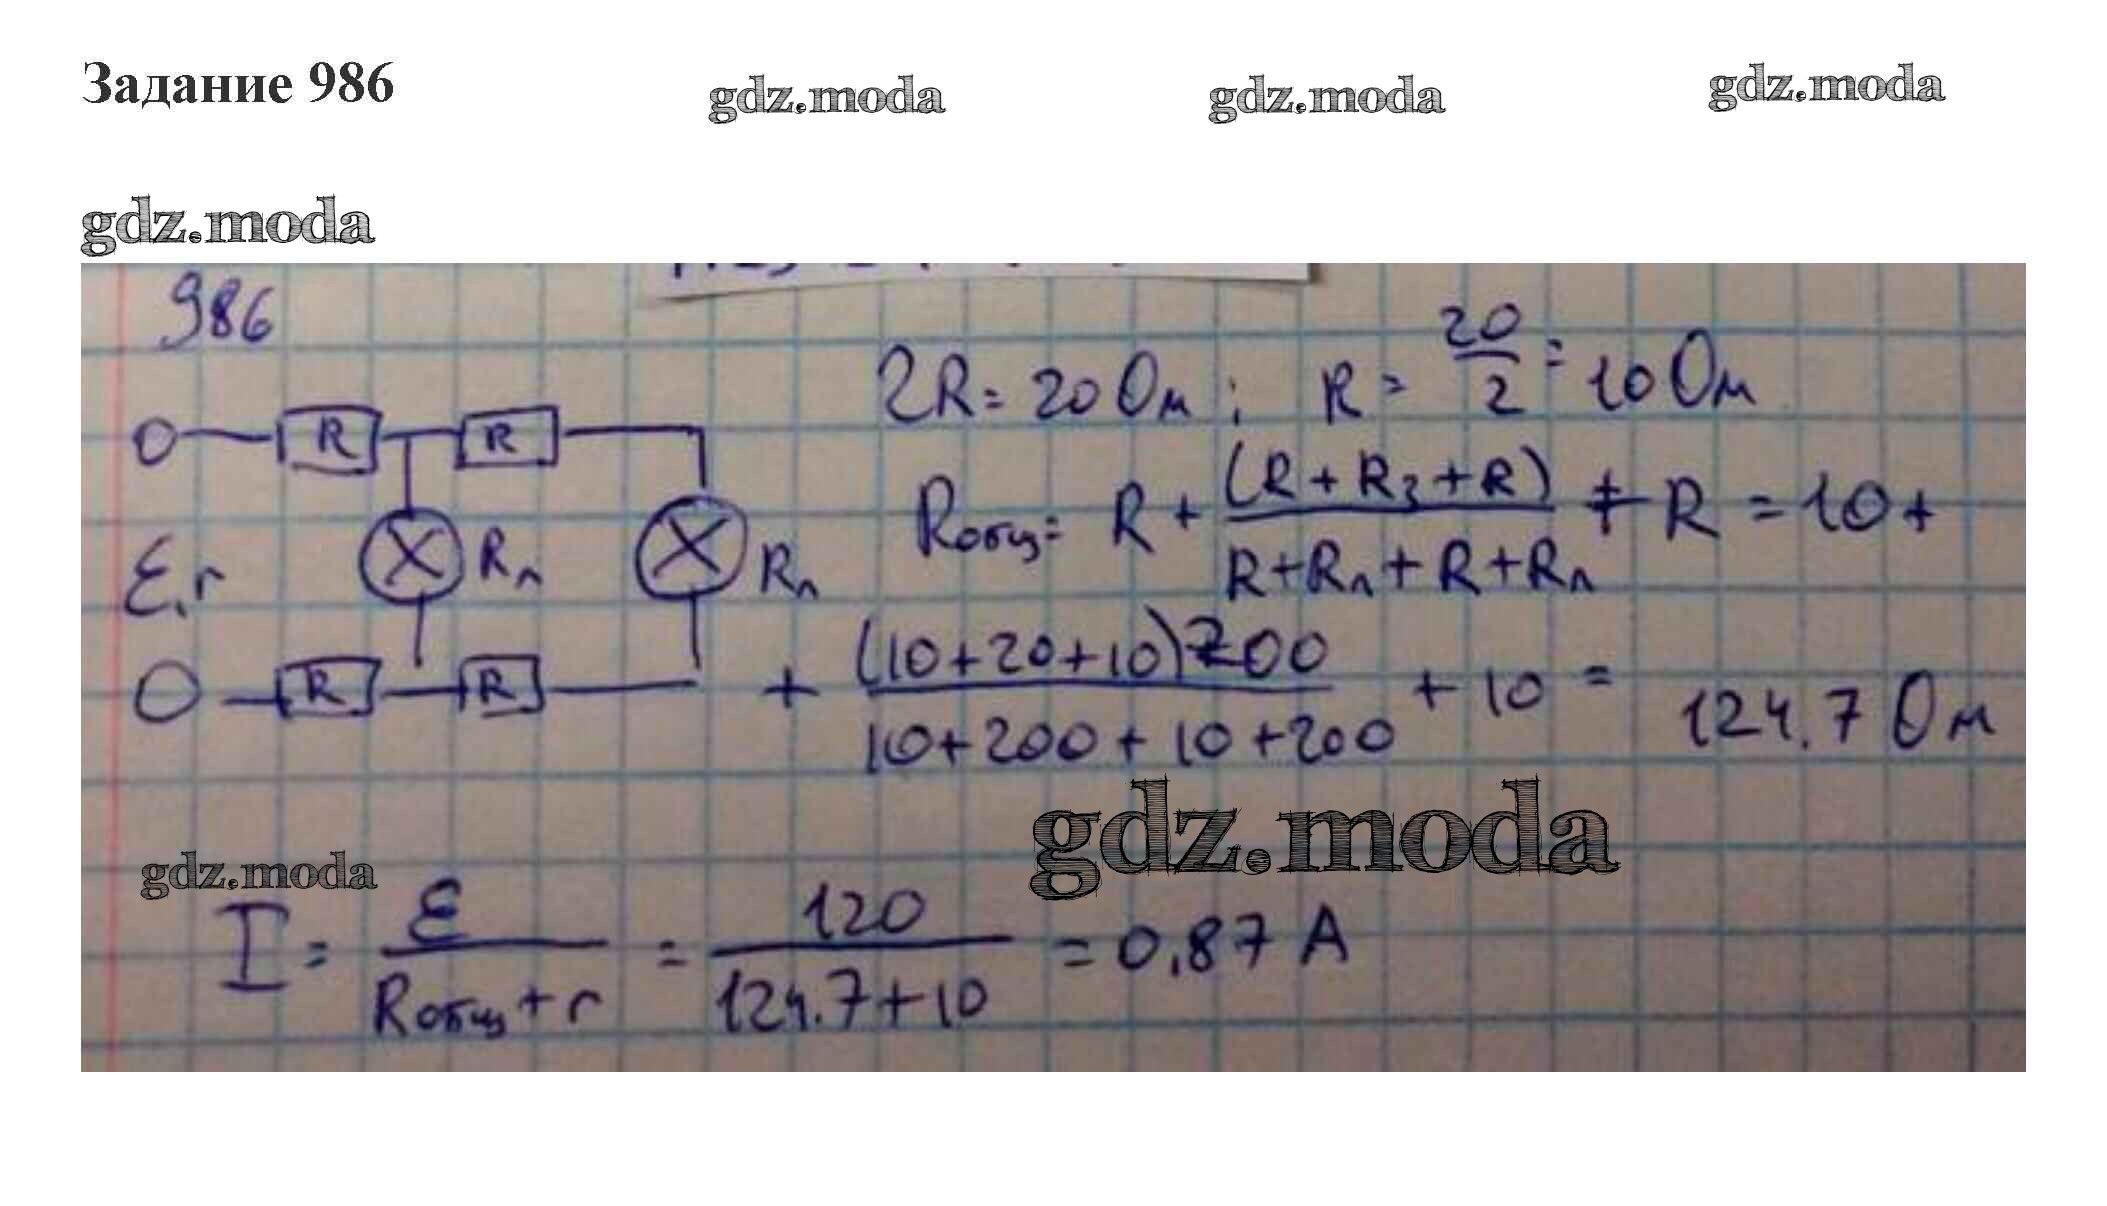 Задание 986
gdz.moda gdz.moda gdz.moda
gdz.moda
986
2R = 20 Ом ; R = 20/2 = 10 Ом
R R
Rобщ = R + (R + R3 + R) / (R + Rл + R + Rл) + R = 10 +
ℰ, r Rл Rл
R R
+ (10+20+10)200 / (10+200+10+200) + 10 = 124.7 Ом
gdz.moda
gdz.moda
I = ℰ / (Rобщ + r) = 120 / (124.7+10) = 0.87 А